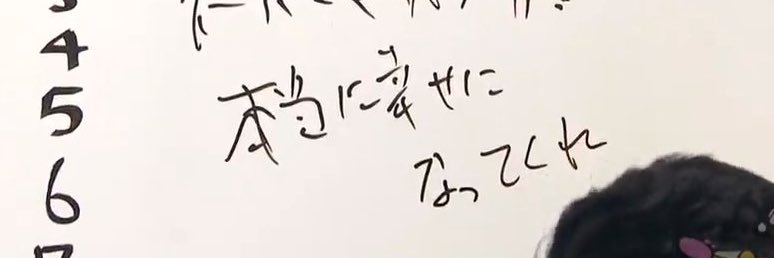 4
5
6
本当に幸せに
なってくれ